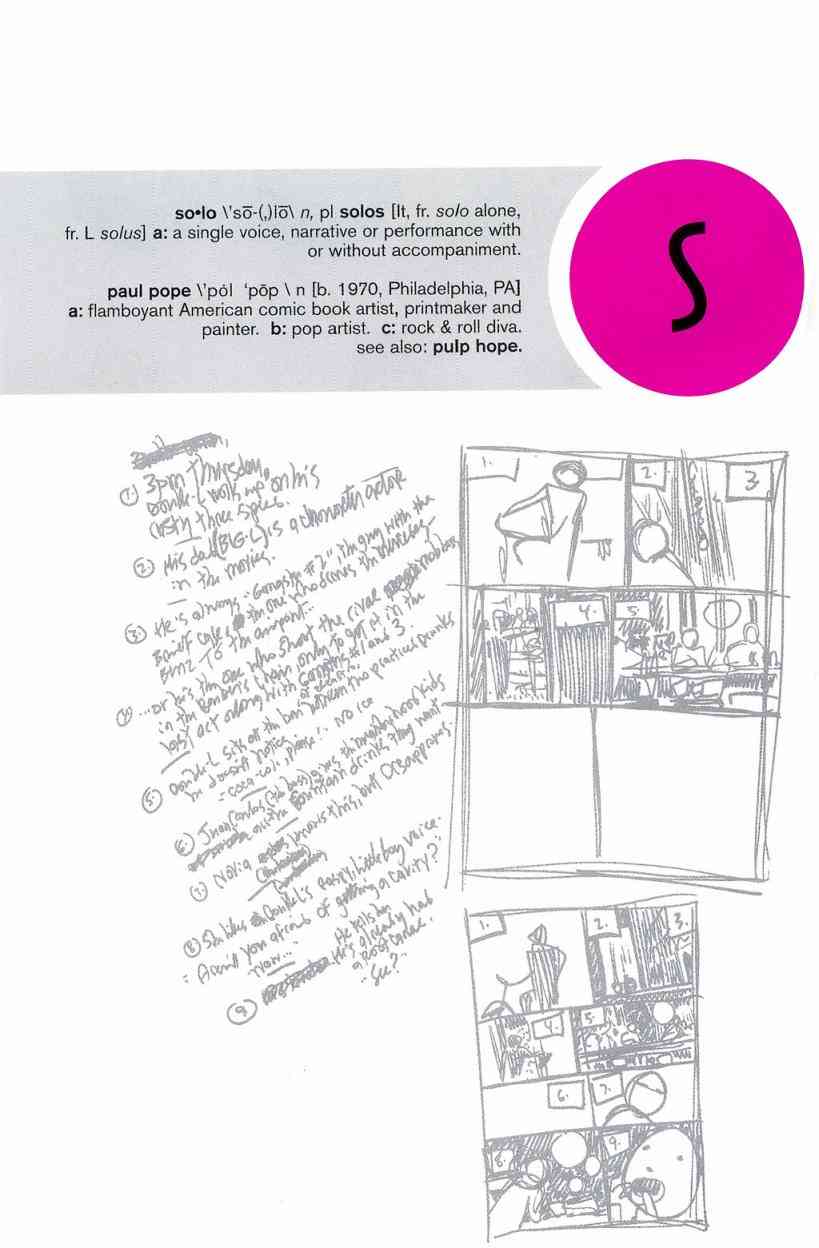 so•lo \'sō-(,)lō\ n, pl solos [It, fr. solo alone,
fr. L solus] a: a single voice, narrative or performance with
or without accompaniment.
paul pope \'pól 'pōp \ n [b. 1970, Philadelphia, PA]
a: flamboyant American comic book artist, printmaker and
painter. b: pop artist. c: rock & roll diva.
see also: pulp hope.
S
① 3pm Thursday,
work up on his
three
② His dad (BIG-L) is a character actor
in the movies.
③ He's always "Gangster #2" The guy with the
Brief case, the one who drives the
Benz To the airport...
④ ...or he's the one who shoots the rival
in the barber's chair only to get it in the
last act along with Gangsters #1 and 3.
⑤ sits at the bar between two
he doesn't notice
"coca-cola, please... No ice
⑥ Juan Carlos (the boss) gives the neighborhood kids
all the fountain drinks they want
⑦ knows this, but Disapproves
⑧ She likes little boy voice.
"Aren't you afraid of getting a cavity?"
Now...
⑨ He tells her
He's already had
a Root canal.
"See?"
1.
2.
3.
4.
5.
1.
2.
3.
4.
5.
6.
7.
8.
9.